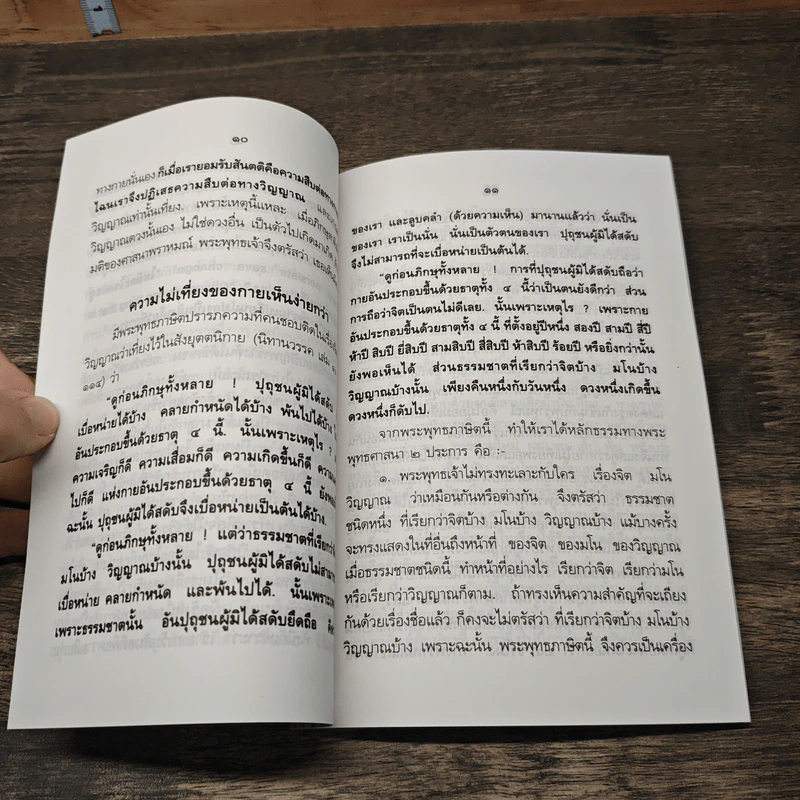 ๑๐
ทางกายนั่นเอง ก็เมื่อเรายอมรับสันตติคือความสืบต่อทาง
ไฉนเราจึงปฏิเสธความสืบต่อทางวิญญาณ
วิญญาณเท่านั้นเที่ยง. เพราะเหตุนี้แหละ เมื่อภิกษุ
วิญญาณดวงนั้นเอง ไม่ใช่ดวงอื่น เป็นตัวไปเกิดมาเกิด
มติของศาสนาพราหมณ์ พระพุทธเจ้าจึงตรัสว่า เธอเห็น
ความไม่เที่ยงของกายเห็นง่ายกว่า
มีพระพุทธภาษิตปรารภความที่คนชอบติดใน
วิญญาณว่าเที่ยงไว้ในสังยุตตนิกาย (นิทานวรรค เล่ม
๑๑๔) ว่า
“ดูก่อนภิกษุทั้งหลาย ! ปุถุชนผู้มิได้สดับ
เบื่อหน่ายได้บ้าง คลายกำหนัดได้บ้าง พ้นไปได้บ้าง
อันประกอบขึ้นด้วยธาตุ ๔ นี้. นั้นเพราะเหตุไร ?
ความเจริญก็ดี ความเสื่อมก็ดี ความเกิดขึ้นก็ดี
ไปก็ดี แห่งกายอันประกอบขึ้นด้วยธาตุ ๔ นี้
ฉะนั้น ปุถุชนผู้มิได้สดับจึงเบื่อหน่ายเป็นต้นได้บ้าง.
“ดูก่อนภิกษุทั้งหลาย ! แต่ว่าธรรมชาตที่เรียกว่า
มโนบ้าง วิญญาณบ้างนั้น ปุถุชนผู้มิได้สดับไม่สามารถ
เบื่อหน่าย คลายกำหนัด และพ้นไปได้. นั้นเพราะ
เพราะธรรมชาตนั้น อันปุถุชนผู้มิได้สดับยึดถือ
๑๑
ของเรา และลูบคลำ (ด้วยความเห็น) มานานแล้วว่า นั่นเป็น
ของเรา เราเป็นนั่น นั่นเป็นตัวตนของเรา ปุถุชนผู้มิได้สดับ
จึงไม่สามารถที่จะเบื่อหน่ายเป็นต้นได้.
“ดูก่อนภิกษุทั้งหลาย ! การที่ปุถุชนผู้มิได้สดับถือว่า
กายอันประกอบขึ้นด้วยธาตุทั้ง ๔ นี้ว่าเป็นตนยังดีกว่า ส่วน
การถือว่าจิตเป็นตนไม่ดีเลย. นั้นเพราะเหตุไร ? เพราะกาย
อันประกอบขึ้นด้วยธาตุทั้ง ๔ นี้ ที่ตั้งอยู่ปีหนึ่ง สองปี สามปี สี่ปี
ห้าปี สิบปี ยี่สิบปี สามสิบปี สี่สิบปี ห้าสิบปี ร้อยปี หรือยิ่งกว่านั้น
ยังพอเห็นได้ ส่วนธรรมชาตที่เรียกว่าจิตบ้าง มโนบ้าง
วิญญาณบ้างนั้น เพียงคืนหนึ่งกับวันหนึ่ง ดวงหนึ่งเกิดขึ้น
ดวงหนึ่งก็ดับไป.
จากพระพุทธภาษิตนี้ ทำให้เราได้หลักธรรมทางพระ
พุทธศาสนา ๒ ประการ คือ :-
๑. พระพุทธเจ้าไม่ทรงทะเลาะกับใคร เรื่องจิต มโน
วิญญาณ ว่าเหมือนกันหรือต่างกัน จึงตรัสว่า ธรรมชาต
ชนิดหนึ่ง ที่เรียกว่าจิตบ้าง มโนบ้าง วิญญาณบ้าง แม้บางครั้ง
จะทรงแสดงในที่อื่นถึงหน้าที่ ของจิต ของมโน ของวิญญาณ
เมื่อธรรมชาตชนิดนี้ ทำหน้าที่อย่างไร เรียกว่าจิต เรียกว่ามโน
หรือเรียกว่าวิญญาณก็ตาม. ถ้าทรงเห็นความสำคัญที่จะเถียง
กันด้วยเรื่องชื่อแล้ว ก็คงจะไม่ตรัสว่า ที่เรียกว่าจิตบ้าง มโนบ้าง
วิญญาณบ้าง เพราะฉะนั้น พระพุทธภาษิตนี้ จึงควรเป็นเครื่อง